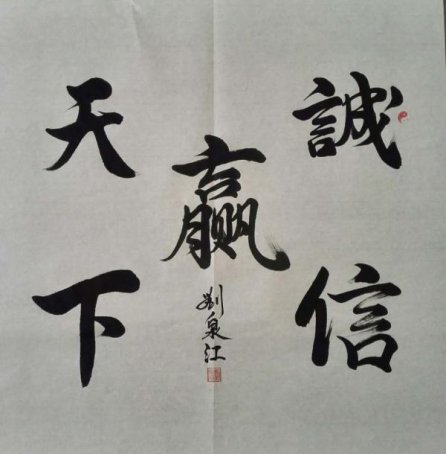 誠信
赢
劉泉江
天下